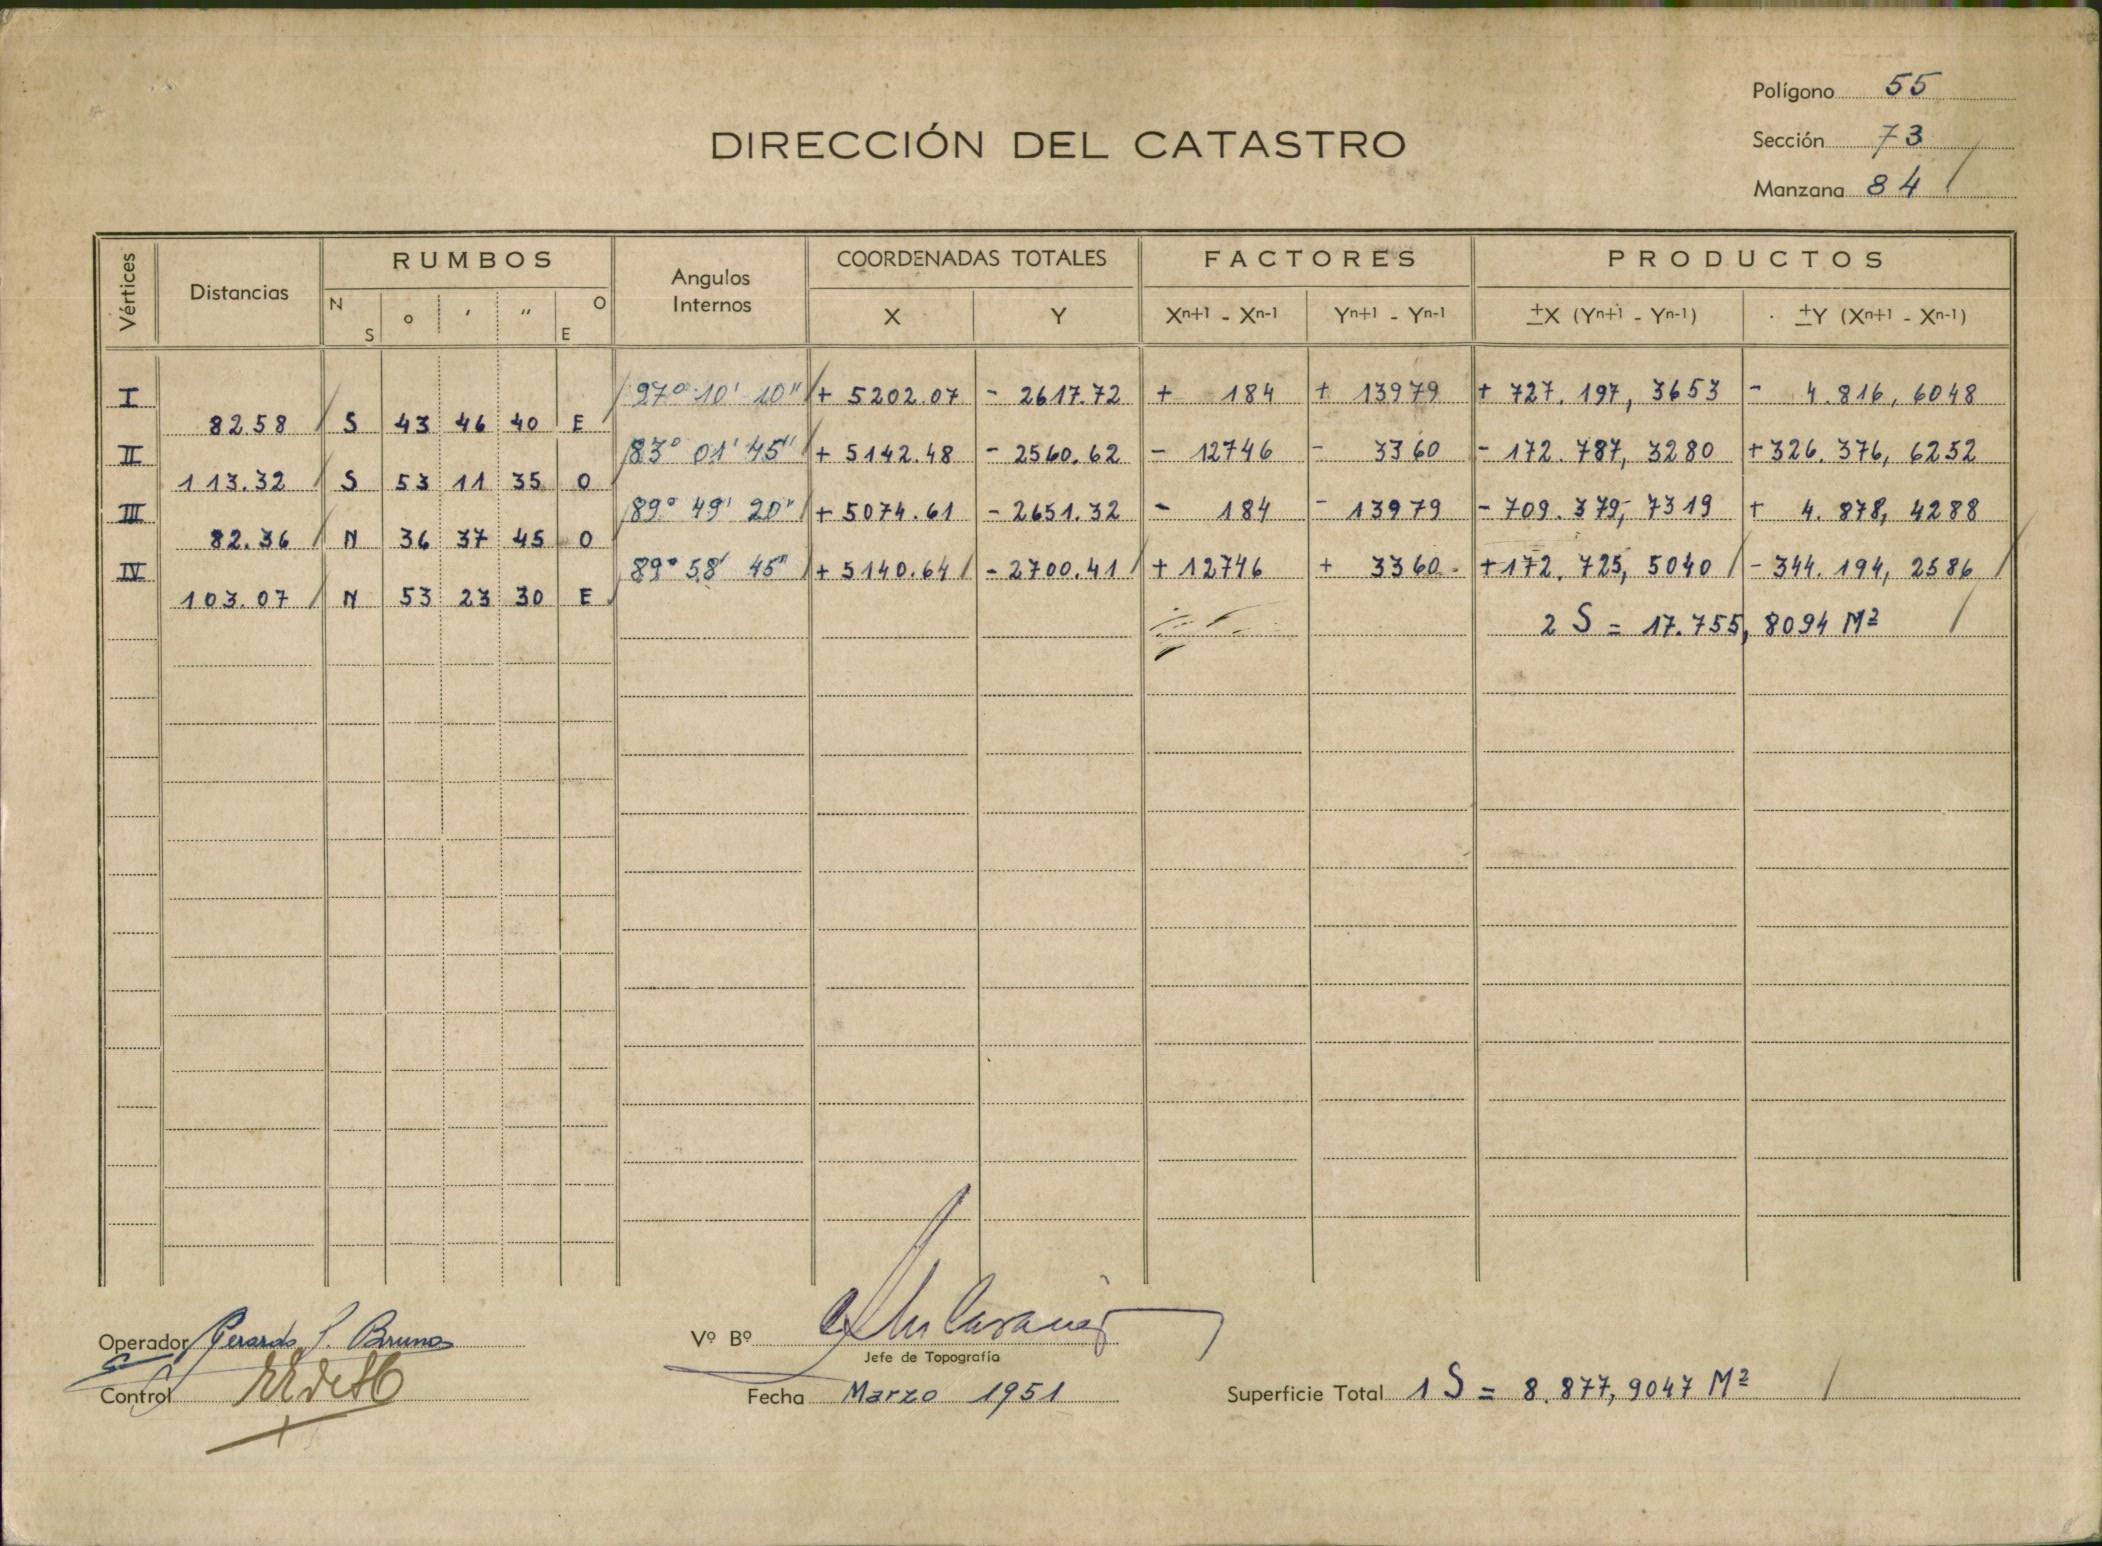 Polígono 55
DIRECCIÓN DEL CATASTRO
Sección 73
Manzana 84
Vértices Distancias RUMBOS Angulos Internos COORDENADAS TOTALES FACTORES PRODUCTOS
N S o ' " E O X Y Xn+1 - Xn-1 Yn+1 - Yn-1 ±X (Yn+1 - Yn-1) ±Y (Xn+1 - Xn-1)
I 97° 10' 10" + 5202.07 - 2617.72 + 184 + 13979 + 727.197,3653 - 4.816,6048
82.58 S 43 46 40 E
II 83° 01' 45" + 5142.48 - 2560.62 - 12746 - 3360 - 172.787,3280 + 326.376,6252
113.32 S 53 11 35 O
III 89° 49' 20" + 5074.61 - 2651.32 - 184 - 13979 - 709.379,7319 + 4.878,4288
82.36 N 36 37 45 O
IV 89° 58' 45" + 5140.64 - 2700.41 + 12746 + 3360 + 172.725,5040 - 344.194,2586
103.07 N 53 23 30 E
2 S = 17.755,8094 M²
Operador Gerardo S. Bruno
Vº Bº
Jefe de Topografía
Control
Fecha Marzo 1951
Superficie Total 1 S = 8.877,9047 M²